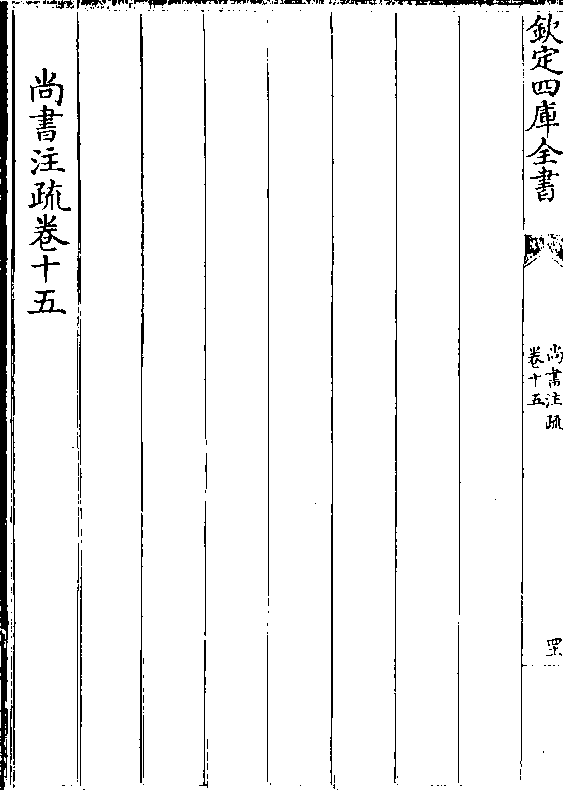 欽定四庫全書
尚書注疏
卷十五
尚書注疏卷十五